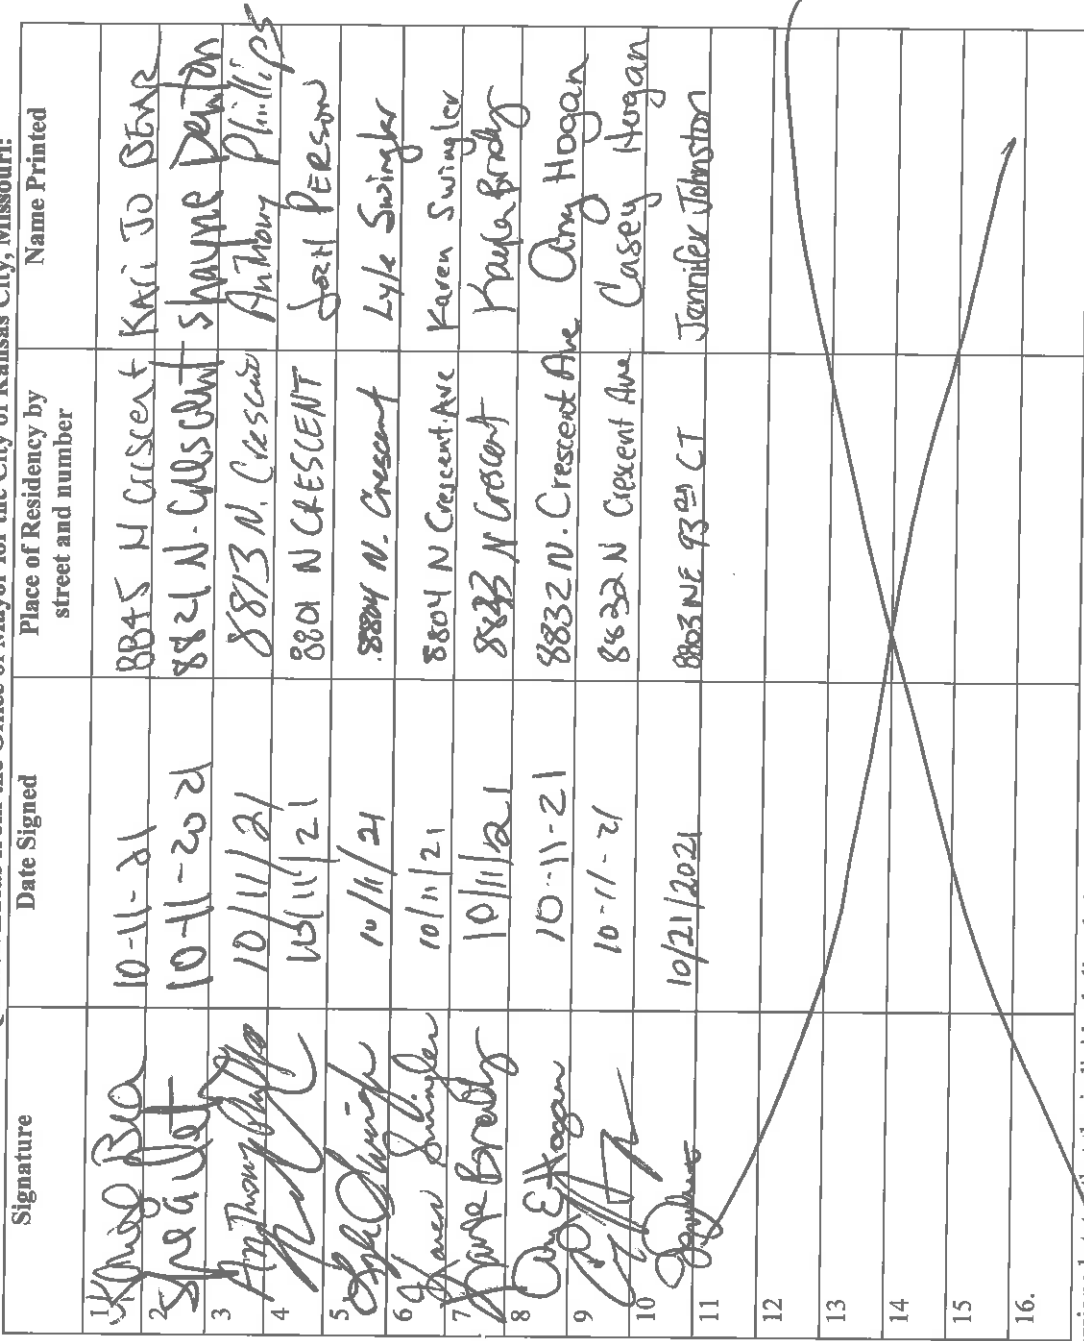 from the Office of Mayor for the City of Kansas City, Missouri:
Signature Date Signed Place of Residency by street and number Name Printed
1 10-11-21 8845 N Crescent Kari Jo Bear
2 10-11-2021 8821 N. Crescent Shayne Denton
3 Anthony Phillips 10/11/21 8813 N. Crescent Anthony Phillips
4 10/11/21 8801 N CRESCENT JOSH PERSON
5 Lyle Swingler 10/11/21 8804 N. Crescent Lyle Swingler
6 Karen Swingler 10/11/21 8804 N Crescent Ave Karen Swingler
7 10/11/21 8833 N Crescent Kayla Brady
8 Amy E Hogan 10-11-21 8832 N. Crescent Ave Amy Hogan
9 10-11-21 8832 N Crescent Ave Casey Hogan
10 10/21/2021 8803 NE 93rd CT Jennifer Johnston
11
12
13
14
15
16.